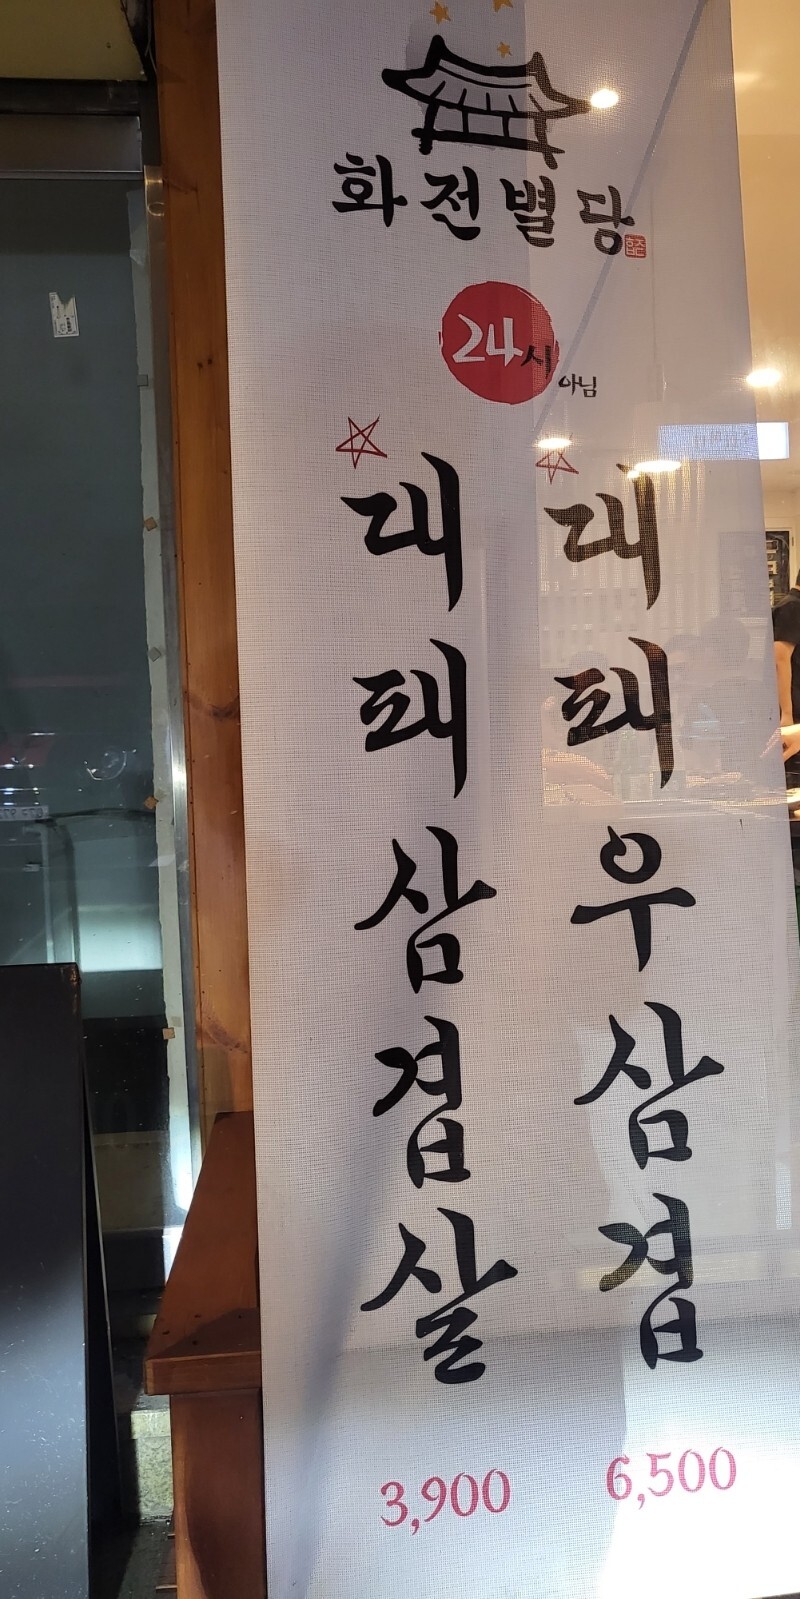 화전별당
24시 아님
대패삼겹살
3,900
대패우삼겹
6,500